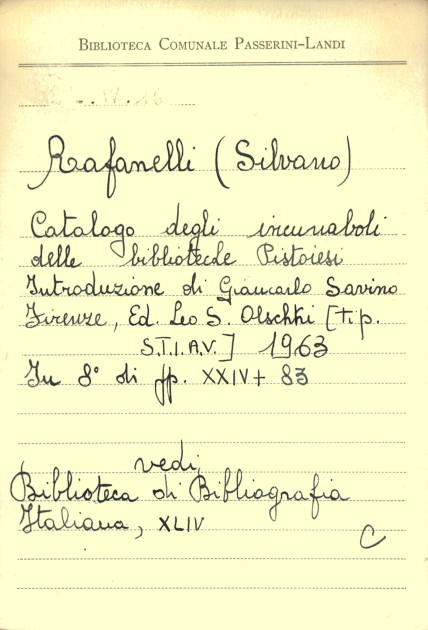 BIBLIOTECA COMUNALE PASSERINI-LANDI
Rafanelli (Silvano)
Catalogo degli incunaboli
delle biblioteche Pistoiesi
Introduzione di Giancarlo Savino
Firenze, Ed. Leo S. Olschki [tip.
S.T.I.A.V.] 1963
In 8° di pp. XXIV + 83
vedi
Biblioteca di Bibliografia
Italiana, XLIV
C